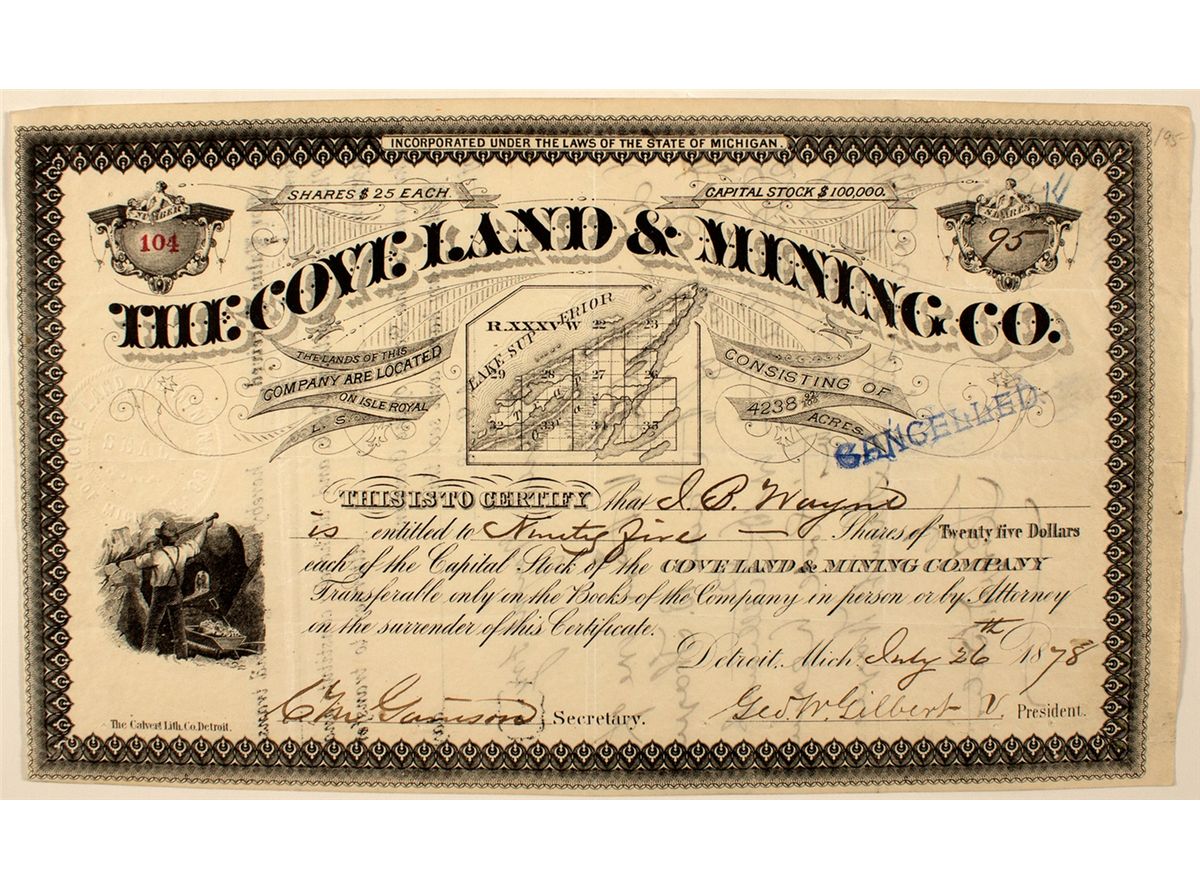 195
INCORPORATED UNDER THE LAWS OF THE STATE OF MICHIGAN.
SHARES $25 EACH
CAPITAL STOCK $100,000.
NUMBER
104
SHARES
95
THE COVE LAND & MINING CO.
THE LANDS OF THIS
COMPANY ARE LOCATED
ON ISLE ROYAL
L. S.
R.XXXV W
LAKE SUPERIOR
22 23
29 28 27 26
32 34 35
CONSISTING OF
4238
ACRES
CANCELLED
THIS IS TO CERTIFY that I. B. Wayne
is entitled to Ninety five — Shares of Twenty five Dollars
each of the Capital Stock of the COVE LAND & MINING COMPANY
Transferable only in the Books of the Company in person or by Attorney
on the surrender of this Certificate.
Detroit, Mich. July 26th 1878
Garrison Secretary.
Geo. W. Gilbert V. President.
The Calvert Lith. Co. Detroit.